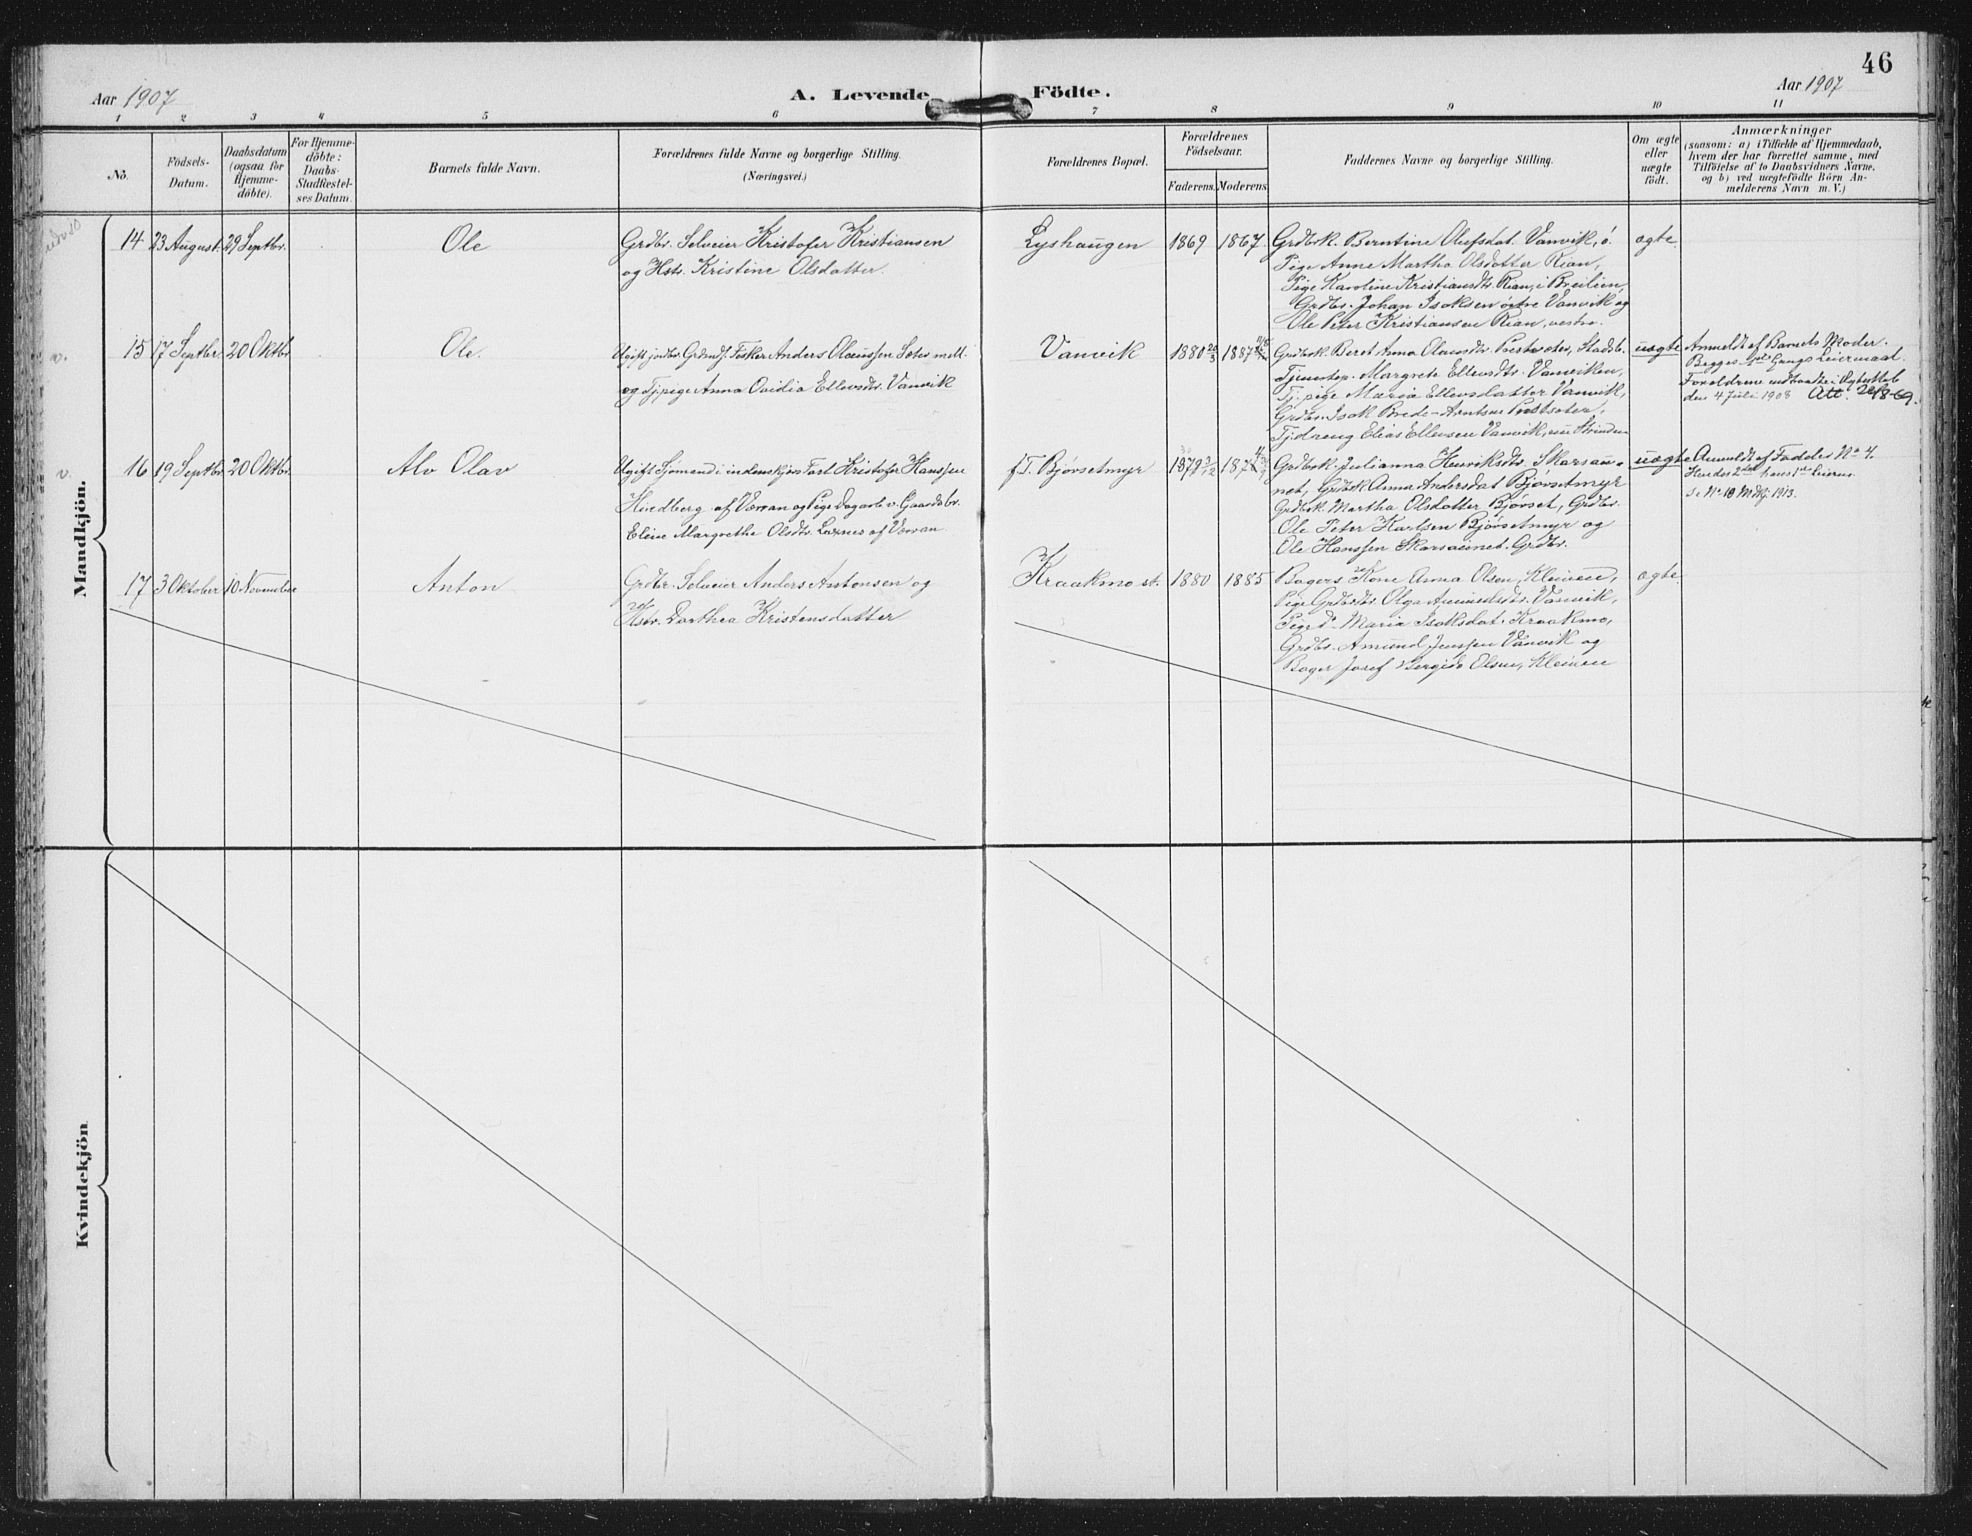 46
Aar 1907
A. Levende
Födte.
Aar 1907
1 2 3 4 5 6 7 8 9 10 11
No.
Födsels-
Datum.
Daabsdatum
(ogsaa for
Hjemme-
döbte).
For Hjemme-
döbte:
Daabs-
Stadfæstel-
ses Datum.
Barnets fulde Navn.
Forældrenes fulde Navne og borgerlige Stilling.
(Næringsvei.)
Forældrenes Bopæl.
Forældrenes
Födselsaar.
Faderens.
Moderens.
Faddernes Navne og borgerlige Stilling.
Om ægte
eller
uægte
födt.
Anmærkninger
(saasom: a) i Tilfælde af Hjemmedaab,
hvem der har forrettet samme, med
Tilföielse af to Daabsvidners Navne.
og b) ved uægtefödte Börn An-
melderens Navn m. V.)
Mandkjön.
14 23 August. 29 Septbr.
Ole
Grdbr. Selveier Kristofer Kristiansen
og Hstr. Kristine Olsdatter.
Lyshaugen
1869 1867
Grdbrk. Berntine Olufsdat. Vanvik, ö.
Pige Anne Martha Olsdotter Rian,
Pige Karoline Kristiansdtr. Rian, i Breilien,
Grdbr. Johan Isaksen östre Vanvik og
Ole Peter Kristiansen Rian, vestre.
ægte.
v.
15 17 Septbr. 20 Oktbr.
Ole.
Ugift Fisker Anders Olaussen Seter mell.
og Tj.pige Anna Ovidia Ellevsdtr. Vanvik
Vanvik
1880 20/3 1887
Grdbrk. Beret Anna Olausdtr. Stadsb.
Tjenestep. Margrete Ellevsdtr. Vanviken,
Tj. pige Maria Ellevsdatter Vanvik,
Grdbr. Isak Brede-Arntsen
Tj.dreng Elias Ellevsen Vanvik,
uægte
Anmeldt af Barnets Moder.
Begges 1ste Gangs Leiermaal.
Forældrene indtraadte i Ægteskab
den 4 Juli 1908 Att.
v.
16 19 Septbr. 20 Oktbr.
Alv Olav
Ugift Sjömand i indenskjærs Fart Kristofer Hanssen
Hindberg af Værran og Pige Dagarb. v. Gaardsbr.
Eline Margrethe Olsdtr. af Værran.
f.T. Bjørsetmyr
Grdbrk. Julianna Henriksdtr. Skarsau-
net, Grdbrk. Anna Andersdat Bjørsetmyr
Grdbrk. Martha Olsdotter Bjørset, Grdbr.
Ole Peter Karlsen Bjørsetmyr og
Ole Hanssen Skarsaunet. Grdbr.
uægte
Anmeldt af Fadder No 4.
Hendes 2det hans 1ste Leierm.
17 3 Oktober 10 November
Anton
Grdbr. Selveier Anders Antonsen og
Hstr. Dorthea Kristensdatter
Kraakmo st.
1880 1885
Bagers Kone Anna Olsen, Kleiven,
Pige Grdbrdtr. Olga Amundsdtr. Vanvik,
Pige Do. Maria Isaksdat. Kraakmo,
Grdbr. Amund Jenssen Vanvik og
Bager Josef Bergitt Olsen, Kleiven
ægte.
Kvindekjön